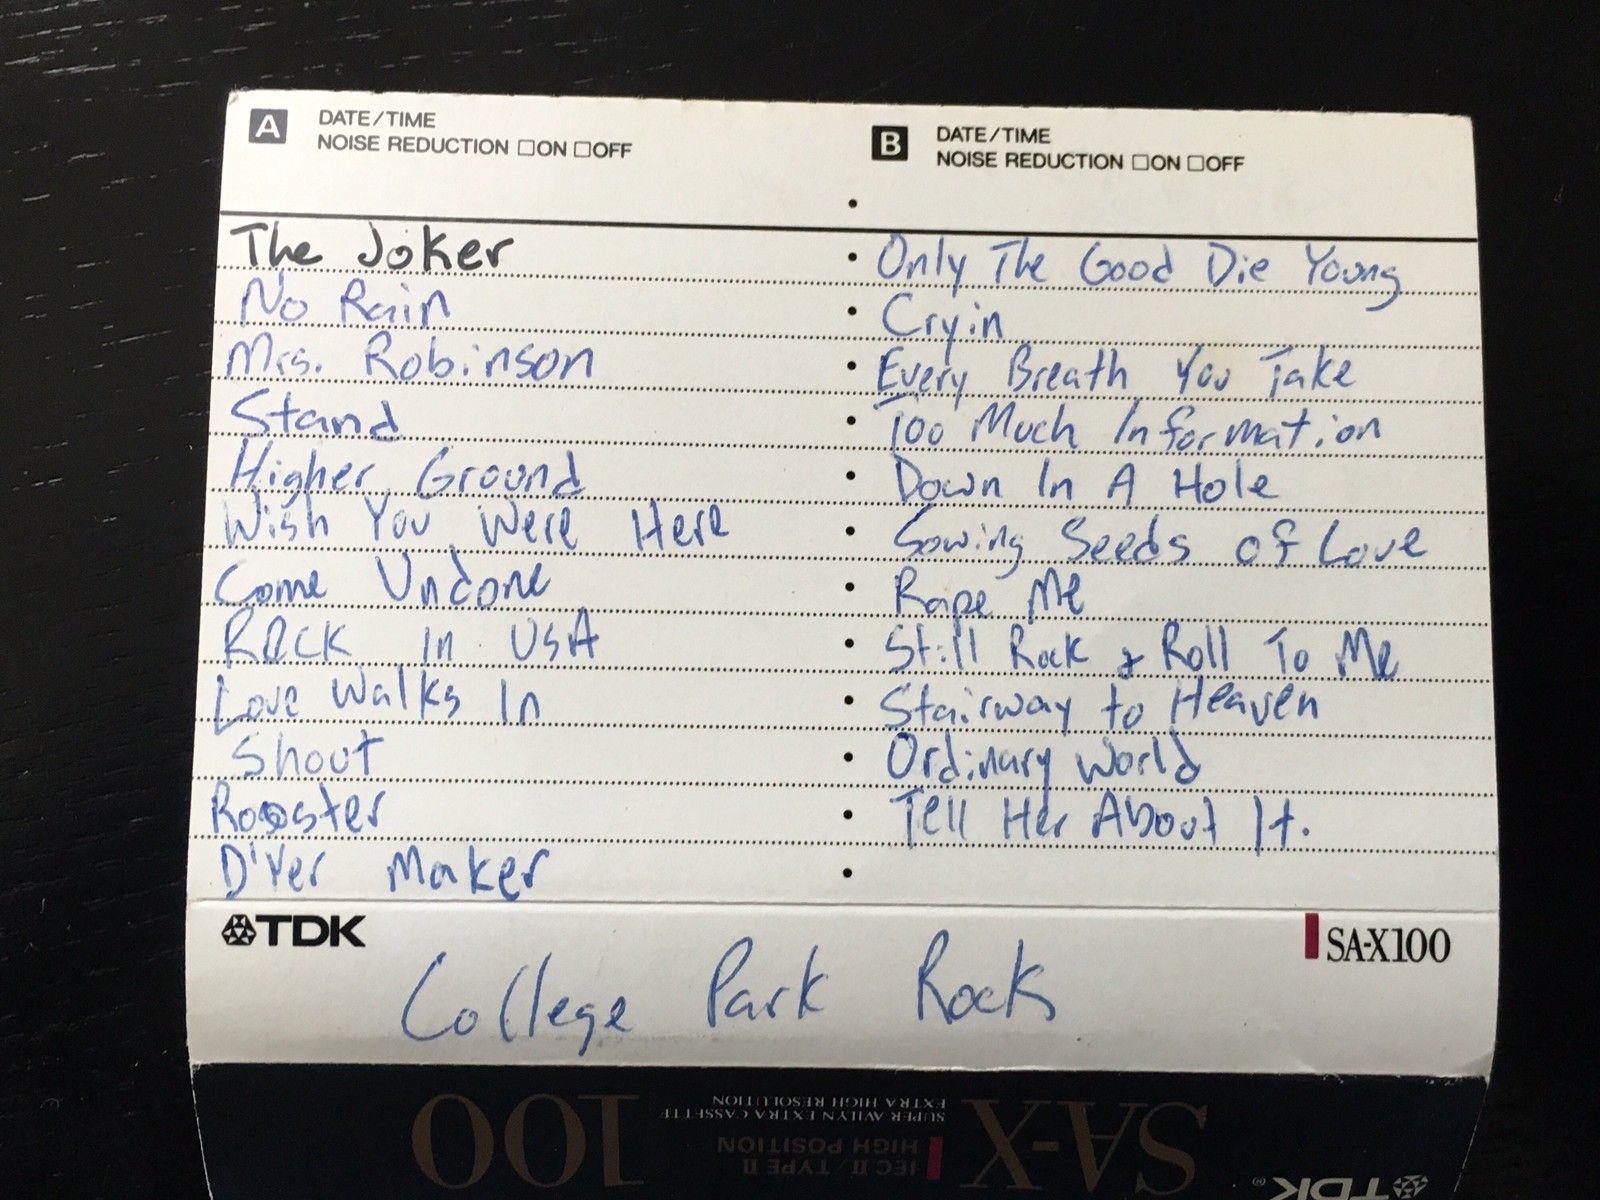 A DATE/TIME
NOISE REDUCTION □ON □OFF
The Joker
No Rain
Mrs. Robinson
Stand
Higher Ground
Wish You Were Here
Come Undone
ROCK In USA
Love Walks In
Shout
Rooster
D'Yer Maker
B DATE/TIME
NOISE REDUCTION □ON □OFF
Only The Good Die Young
Cryin
Every Breath You Take
Too Much Information
Down In A Hole
Sowing Seeds of Love
Rape Me
Still Rock & Roll To Me
Stairway to Heaven
Ordinary World
Tell Her About It.
TDK
SA-X100
College Park Rock
SA-X 100
SUPER AVILYN EXTRA CASSETTE
EXTRA HIGH RESOLUTION
IEC II/TYPE II
HIGH POSITION
TDK®